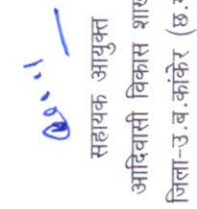 सहायक आयुक्त
आदिवासी विकास शाख
जिला-उ.ब.कांकेर (छ.ग